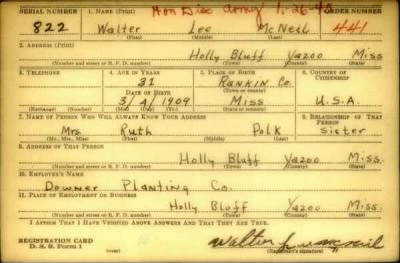 SERIAL NUMBER 1. NAME (Print) Hon Disc Army 1-26-43 ORDER NUMBER
822 Walter Lee McNeil 441
(First) (Middle) (Last)
2. ADDRESS (Print)
Holly Bluff Yazoo Miss
(Number and street or R. F. D. number) (Town) (County) (State)
3. TELEPHONE 4. AGE IN YEARS 5. PLACE OF BIRTH 6. COUNTRY OF CITIZENSHIP
31 Rankin Co.
DATE OF BIRTH (Town or county)
3/4/1909 Miss U.S.A.
(Exchange) (Number) (Mo.) (Day) (Yr.) (State or country)
7. NAME OF PERSON WHO WILL ALWAYS KNOW YOUR ADDRESS 8. RELATIONSHIP OF THAT PERSON
Mrs. Ruth Polk Sister
(Mr., Mrs., Miss) (First) (Middle) (Last)
9. ADDRESS OF THAT PERSON
Holly Bluff Yazoo Miss.
(Number and street or R. F. D. number) (Town) (County) (State)
10. EMPLOYER'S NAME
Downer Planting Co.
11. PLACE OF EMPLOYMENT OR BUSINESS
Holly Bluff Yazoo Miss
(Number and street or R. F. D. number) (Town) (County) (State)
I AFFIRM THAT I HAVE VERIFIED ABOVE ANSWERS AND THAT THEY ARE TRUE.
REGISTRATION CARD
D. S. S. Form 1 Walter Lee McNeil
(Registrant's signature)